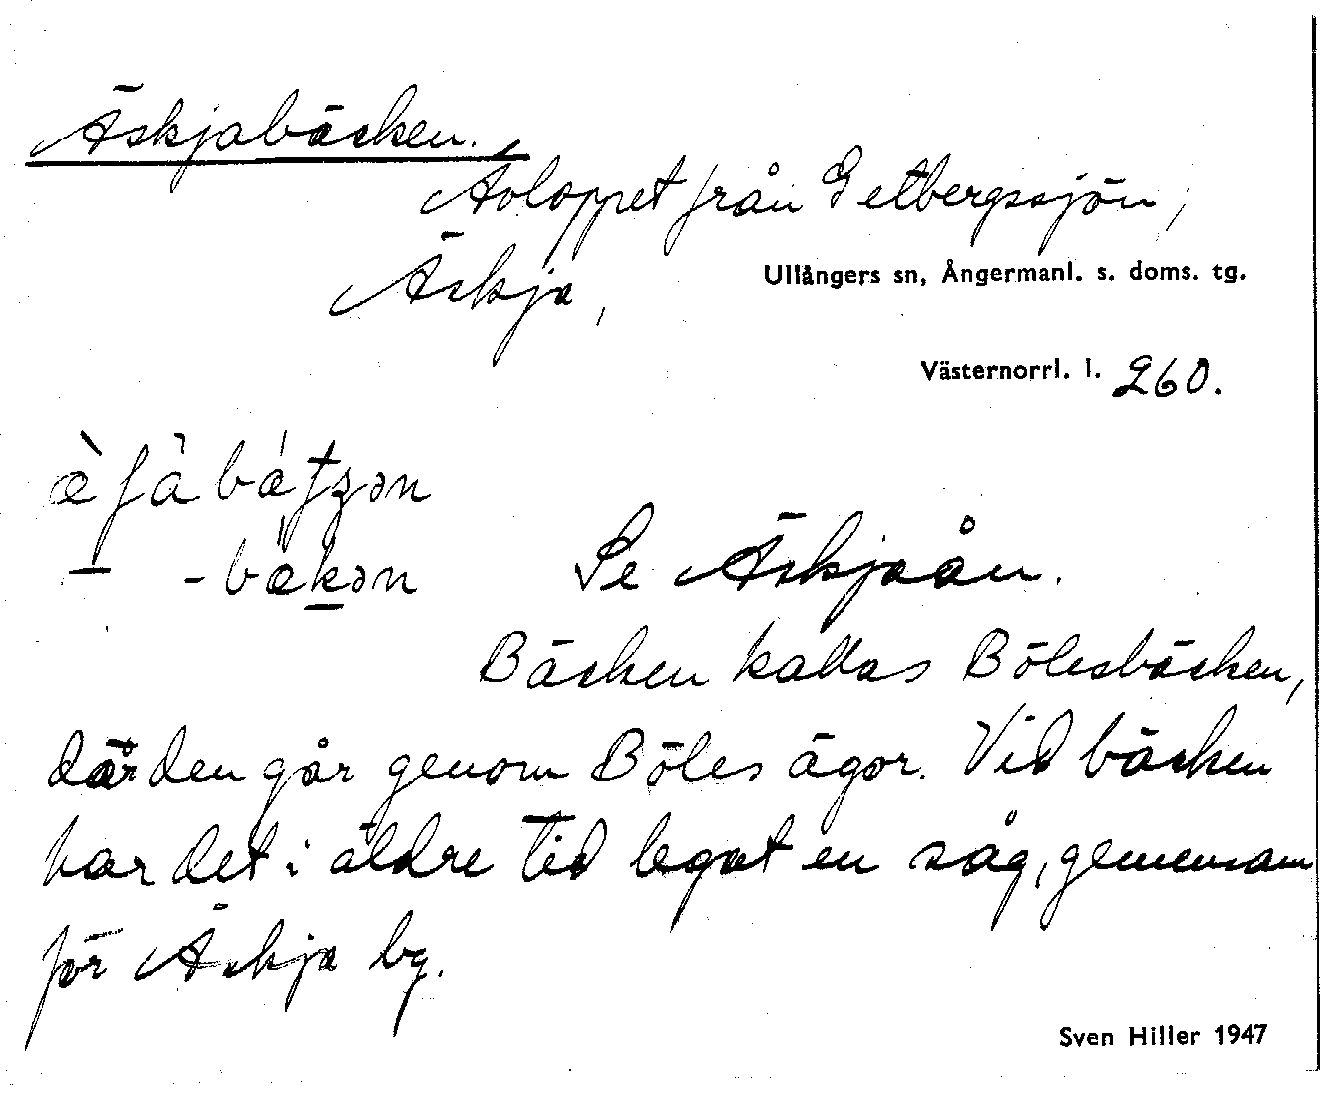 Äskjabäcken.
Avloppet från Getbergssjön,
Äskja,
Ullångers sn, Ångermanl. s. doms. tg.
Västernorrl. l. 260.
-bækən
Se Äskjaån.
Bäcken kallas Bölesbäcken,
där den går genom Böles ägor. Vid bäcken
har det i äldre tid legat en såg, gemensam
för Äskja by.
Sven Hiller 1947